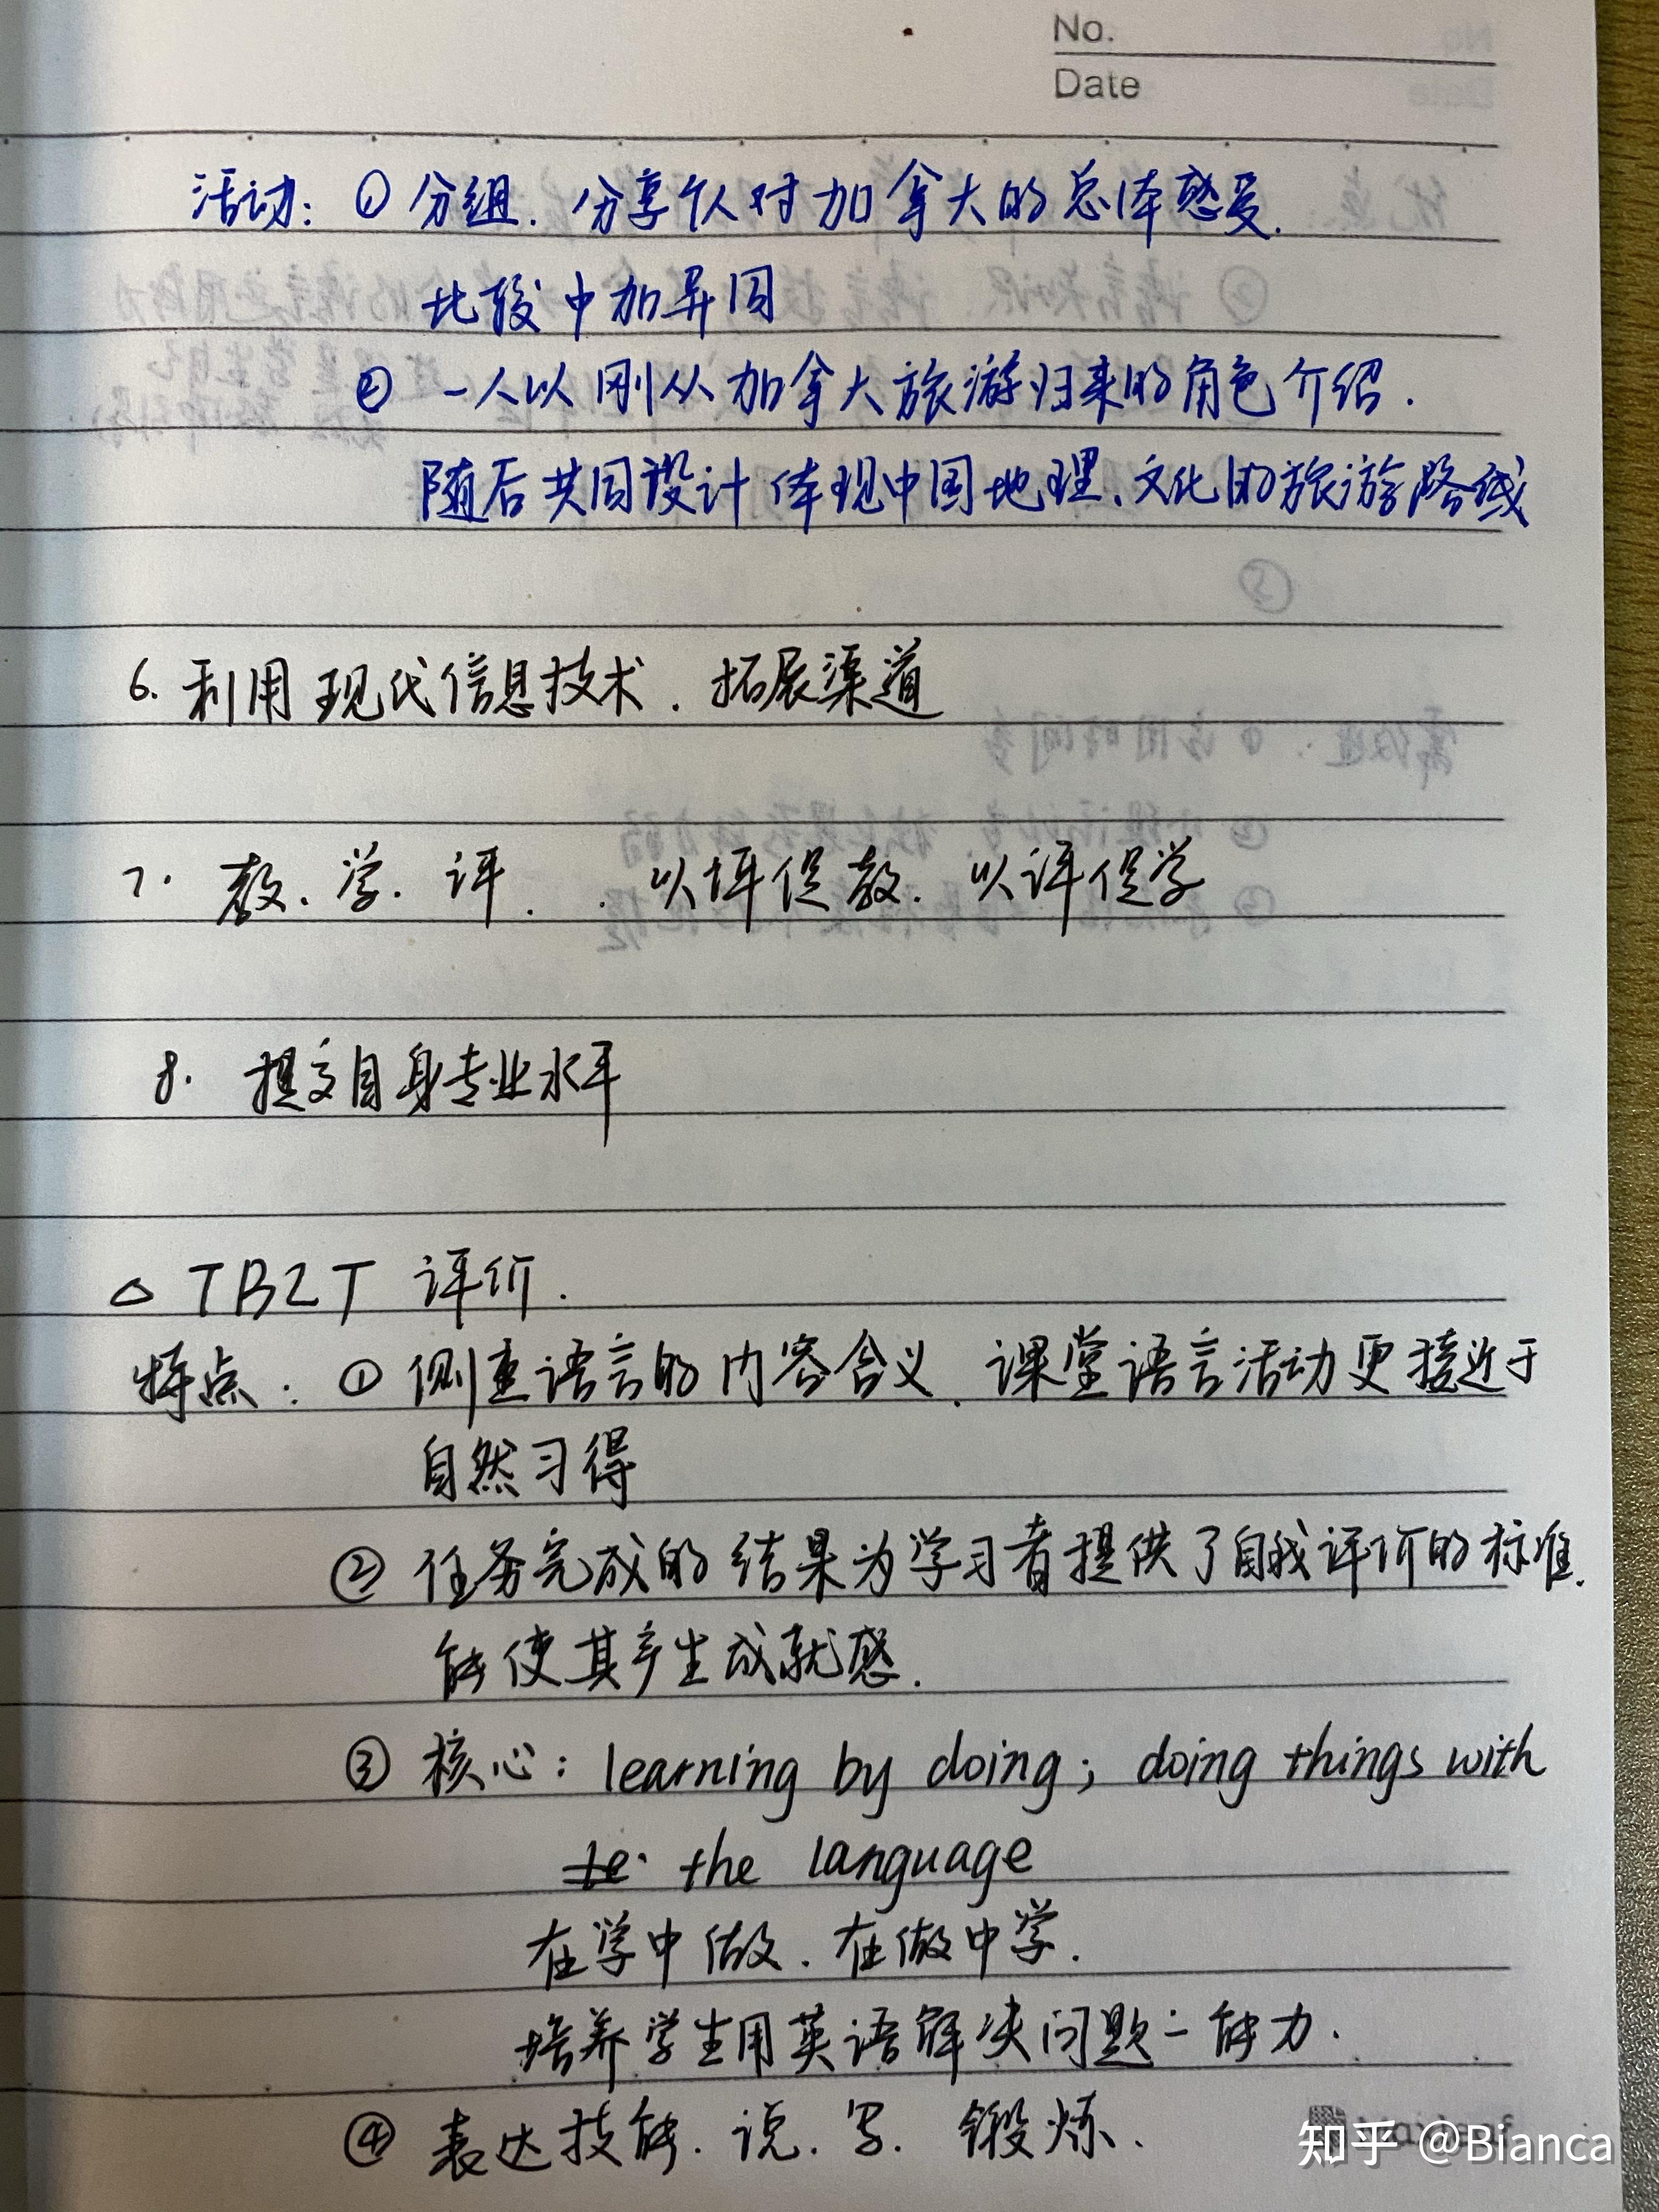 No.
Date
活动: ① 分组. 分享个人对加拿大的总体感受.
比较中加异同
② 一人以刚从加拿大旅游归来的角色介绍.
随后共同设计体现中国地理、文化的旅游路线
6. 利用现代信息技术. 拓展渠道
7. 教、学、评. . 以评促教. 以评促学
8. 提高自身专业水平
△ TBLT 评价.
特点: ① 侧重语言的内容含义、课堂语言活动更接近于
自然习得
② 任务完成的结果为学习者提供了自我评价的标准.
能使其产生成就感.
③ 核心: learning by doing; doing things with
te. the language
在学中做. 在做中学.
培养学生用英语解决问题之能力.
④ 表达技能. 说. 写. 锻炼.
知乎 @Bianca